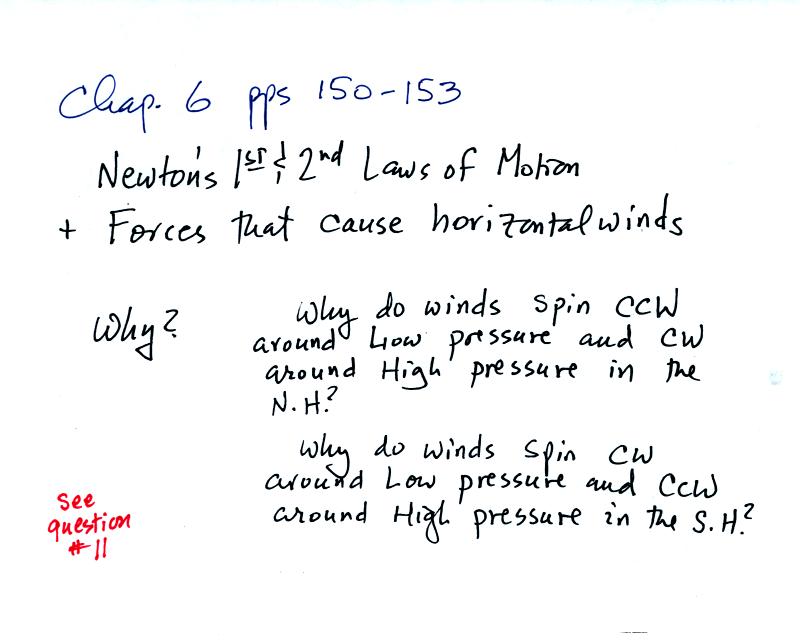 Chap. 6 pps 150-153
Newton's 1st & 2nd Laws of Motion
+ Forces that cause horizontal winds
Why?
Why do winds spin CCW
around Low pressure and CW
around High pressure in the
N.H.?
Why do winds spin CW
around Low pressure and CCW
around High pressure in the S.H.?
see
question
#11